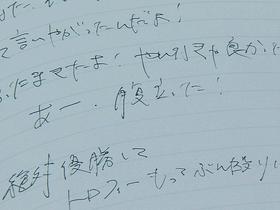 った。
て言いやがったんだよ！
ったまきたよ！やい引きや良かっ
あー．腹立った！
絶対優勝して
トロフィーもってぶん殴りい